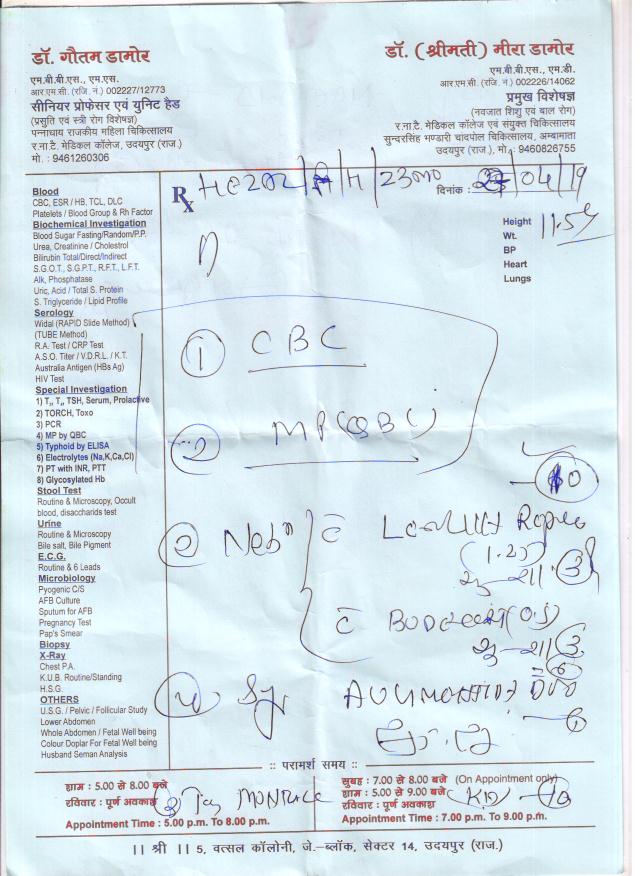 डॉ. गौतम डामोर
एम.बी.बी.एस., एम.एस.
आर.एम.सी. (रजि. नं.) 002227/12773
सीनियर प्रोफेसर एवं युनिट हैड
(प्रसुति एवं स्त्री रोग विशेषज्ञ)
पन्नाधाय राजकीय महिला चिकित्सालय
र.ना.टै. मेडिकल कॉलेज, उदयपुर (राज.)
मो. : 9461260306
डॉ. (श्रीमती) मीरा डामोर
एम.बी.बी.एस., एम.डी.
आर.एम.सी. (रजि. नं.) 002226/14062
प्रमुख विशेषज्ञ
(नवजात शिशु एवं बाल रोग)
र.ना.टै. मेडिकल कॉलेज एवं संयुक्त चिकित्सालय
सुन्दरसिंह भण्डारी चांदपोल चिकित्सालय, अम्बामाता
उदयपुर (राज.), मो. : 9460826755
Rx / M / 23mo दिनांक : /04/19
Height
Wt. 11.5
BP
Heart
Lungs
Blood
CBC, ESR / HB, TCL, DLC
Platelets / Blood Group & Rh Factor
Biochemical Investigation
Blood Sugar Fasting/Random/P.P.
Urea, Creatinine / Cholestrol
Bilirubin Total/Direct/Indirect
S.G.O.T., S.G.P.T., R.F.T., L.F.T.
Alk, Phosphatase
Uric, Acid / Total S. Protein
S. Triglyceride / Lipid Profile
Serology
Widal (RAPID Slide Method)
(TUBE Method)
R.A. Test / CRP Test
A.S.O. Titer / V.D.R.L. / K.T.
Australia Antigen (HBs Ag)
HIV Test
Special Investigation
1) T₃, T₄, TSH, Serum, Prolactive
2) TORCH, Toxo
3) PCR
4) MP by QBC
5) Typhoid by ELISA
6) Electrolytes (Na,K,Ca,Cl)
7) PT with INR, PTT
8) Glycosylated Hb
Stool Test
Routine & Microscopy, Occult
blood, disaccharids test
Urine
Routine & Microscopy
Bile salt, Bile Pigment
E.C.G.
Routine & 6 Leads
Microbiology
Pyogenic C/S
AFB Culture
Sputum for AFB
Pregnancy Test
Pap's Smear
Biopsy
X-Ray
Chest P.A.
K.U.B. Routine/Standing
H.S.G.
OTHERS
U.S.G. / Pelvic / Follicular Study
Lower Abdomen
Whole Abdomen / Fetal Well being
Colour Doplar For Fetal Well being
Husband Seman Analysis
① CBC
② MP(QBC)
10
Neb
(1.25)
सु - शा
(0.5)
सु - शा
Syr
:: परामर्श समय ::
शाम : 5.00 से 8.00 बजे
रविवार : पूर्ण अवकाश
Appointment Time : 5.00 p.m. To 8.00 p.m.
Tab
सुबह : 7.00 से 8.00 बजे (On Appointment only)
शाम : 5.00 से 9.00 बजे
रविवार : पूर्ण अवकाश
Appointment Time : 7.00 p.m. To 9.00 p.m.
|| श्री || 5, वत्सल कॉलोनी, जे.-ब्लॉक, सेक्टर 14, उदयपुर (राज.)